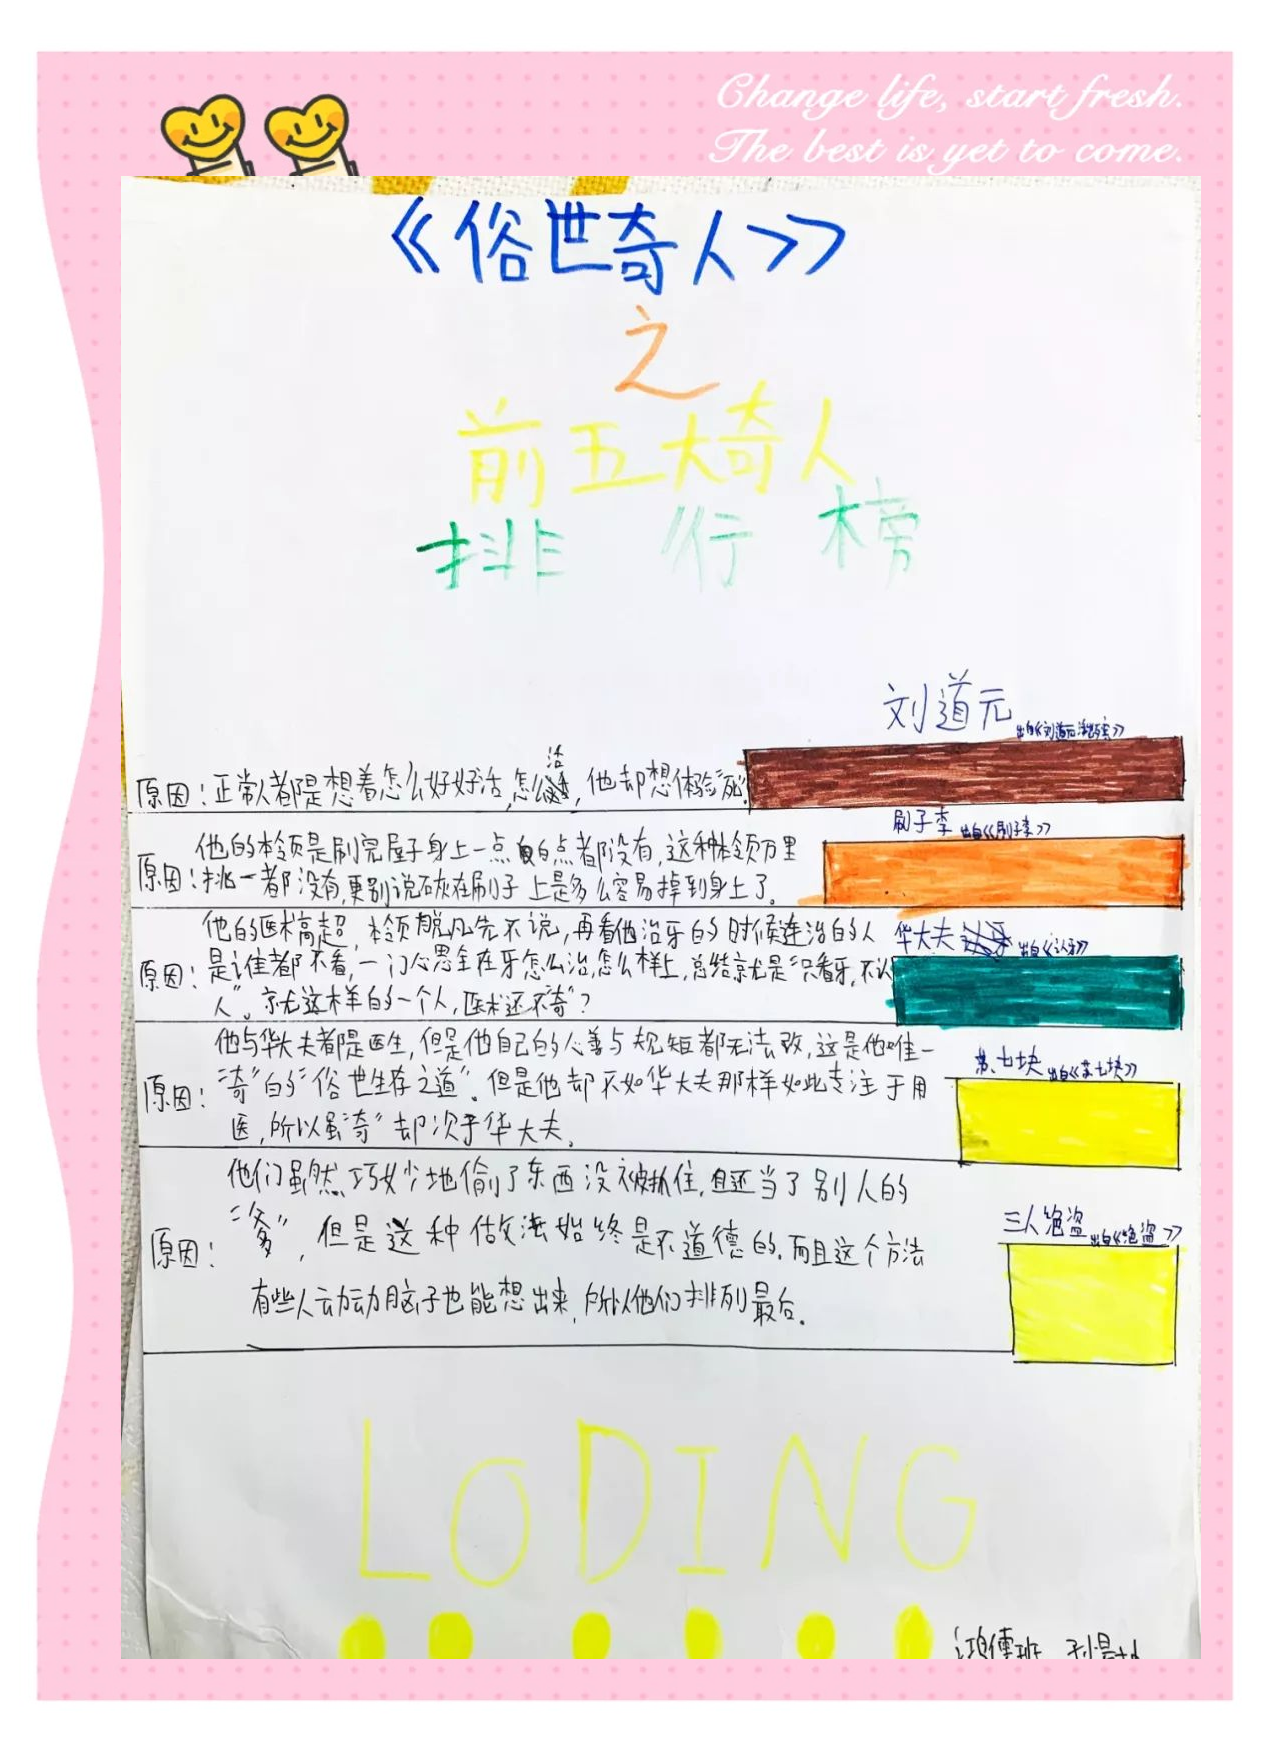 Change life, start fresh.
The best is yet to come.
《俗世奇人》
之
前五大奇人
排行榜
刘道元
出自《刘道元活出殡》
原因：正常人都是想着怎么好好活，怎么活，他却想体验"死"
刷子李 出自《刷子李》
他的本领是刷完屋子身上一点白点都没有，这种本领万里
原因：挑一都没有，更别说石灰在刷子上是多么容易掉到身上了。
华大夫 出自《认牙》
他的医术高超，本领脱凡先不说，再看他治牙的时候连治的人
原因：是谁都不看，一门心思全在牙怎么治，怎么样上，总结就是"只看牙，不认
人"。就这样的一个人，医术还不"奇"？
苏七块 出自《苏七块》
他与华大夫都是医生，但是他自己的心善与规矩都无法改，这是他唯一
原因："奇"的"俗世生存之道"。但是他却不如华大夫那样如此专注于用
医，所以虽"奇"却次于华大夫。
三人绝盗 出自《绝盗》
他们虽然巧妙地偷了东西没被抓住，且还当了别人的
原因："爹"，但是这种做法始终是不道德的，而且这个方法
有些人动动脑子也能想出来，所以他们排列最后。
LODING
鸿儒班